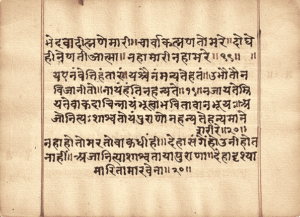 भेदवादीह्मणेमारी॥चार्वाकह्मणतोमरे॥दोघे
हीनेणतीआत्मा॥नहामारीनहामरे॥१९॥
यएनंवेत्तिहंतारंयश्चैनंमन्यतेहतं॥उभौतौन
विजानीतोनायंहंतिनहन्यते॥१९॥नजायतेम्रि
यतेवाकदाचिन्नायंभूत्वाभवितावानभूयः॥अ
जोनित्यःशाश्वतोयंपुराणोनहन्यतेहन्यमाने
शरीरे॥२०॥
नहाहोतोमरतोवाकधींही॥देहासंगेंहोउनीहोत
नाहीं॥अजानित्याशाश्वतायापुराणा॥देहादृश्या
मारितामारवेना॥२०॥